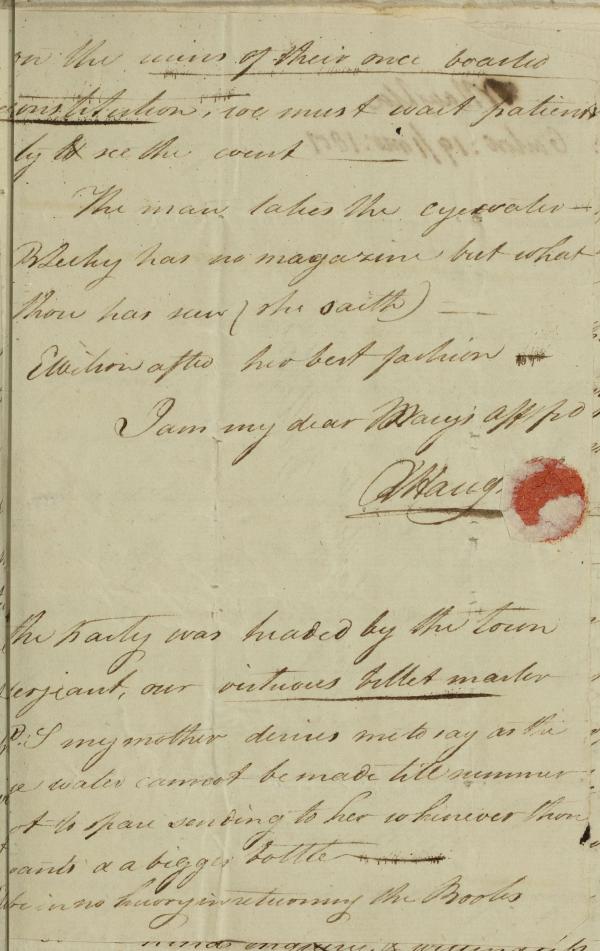 on the ruins of their once boasted
constitution, we must wait patient
ly to see the event
The man takes the eyewater
Becky has no magazine but what
thou has seen (she saith)
after her best fashion
I am my dear Mary's aff
the party was headed by the town
serjeant, our virtuous billet master
P:S my mother desires me to say as the
water cannot be made till summer
not to spare sending to her whenever thou
wants a a bigger bottle
be in no hurry in returning the Books